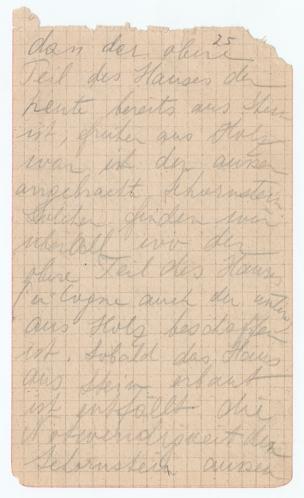 25
dass der obere
Teil des Hauses der
heute bereits aus Stein
ist, früher aus Holz
war ist der aussen
angebracht Schornstein.
Solcher finden wir
überall wo der
obere Teil des Hauses
in Cogne auch der untere
aus Holz beschaffen
ist. Sobald das Haus
aus Stein erbaut
ist entfällt die
Notwendigkeit den
Schornstein aussen